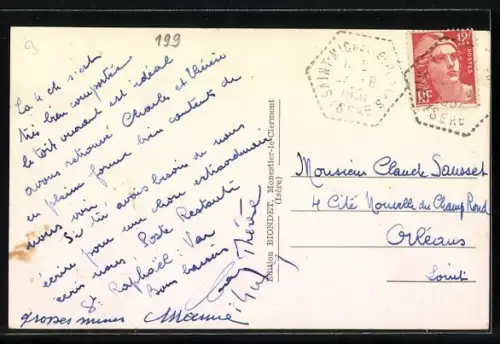 9
199
La 4 ch s'est
très bien comportée
le toit ouvrant est idéal
avons retrouvé Charles et Thérèse
en pleine forme bien contents de
nous voir.
Si tu avais besoin de nous
écrire pour une chose extraordinaire
écris nous Poste Restante
St Raphaël. Var
Bons baisers
Thérèse
grosses mimes Mamie
Edition BIONDET, Monestier-le-Clermont
(Isère)
ISERE
12F
POSTES
RF
ISERE
Monsieur Claude Sausset
4 Cité Nouvelle du Champ Rond
Orléans
Loiret